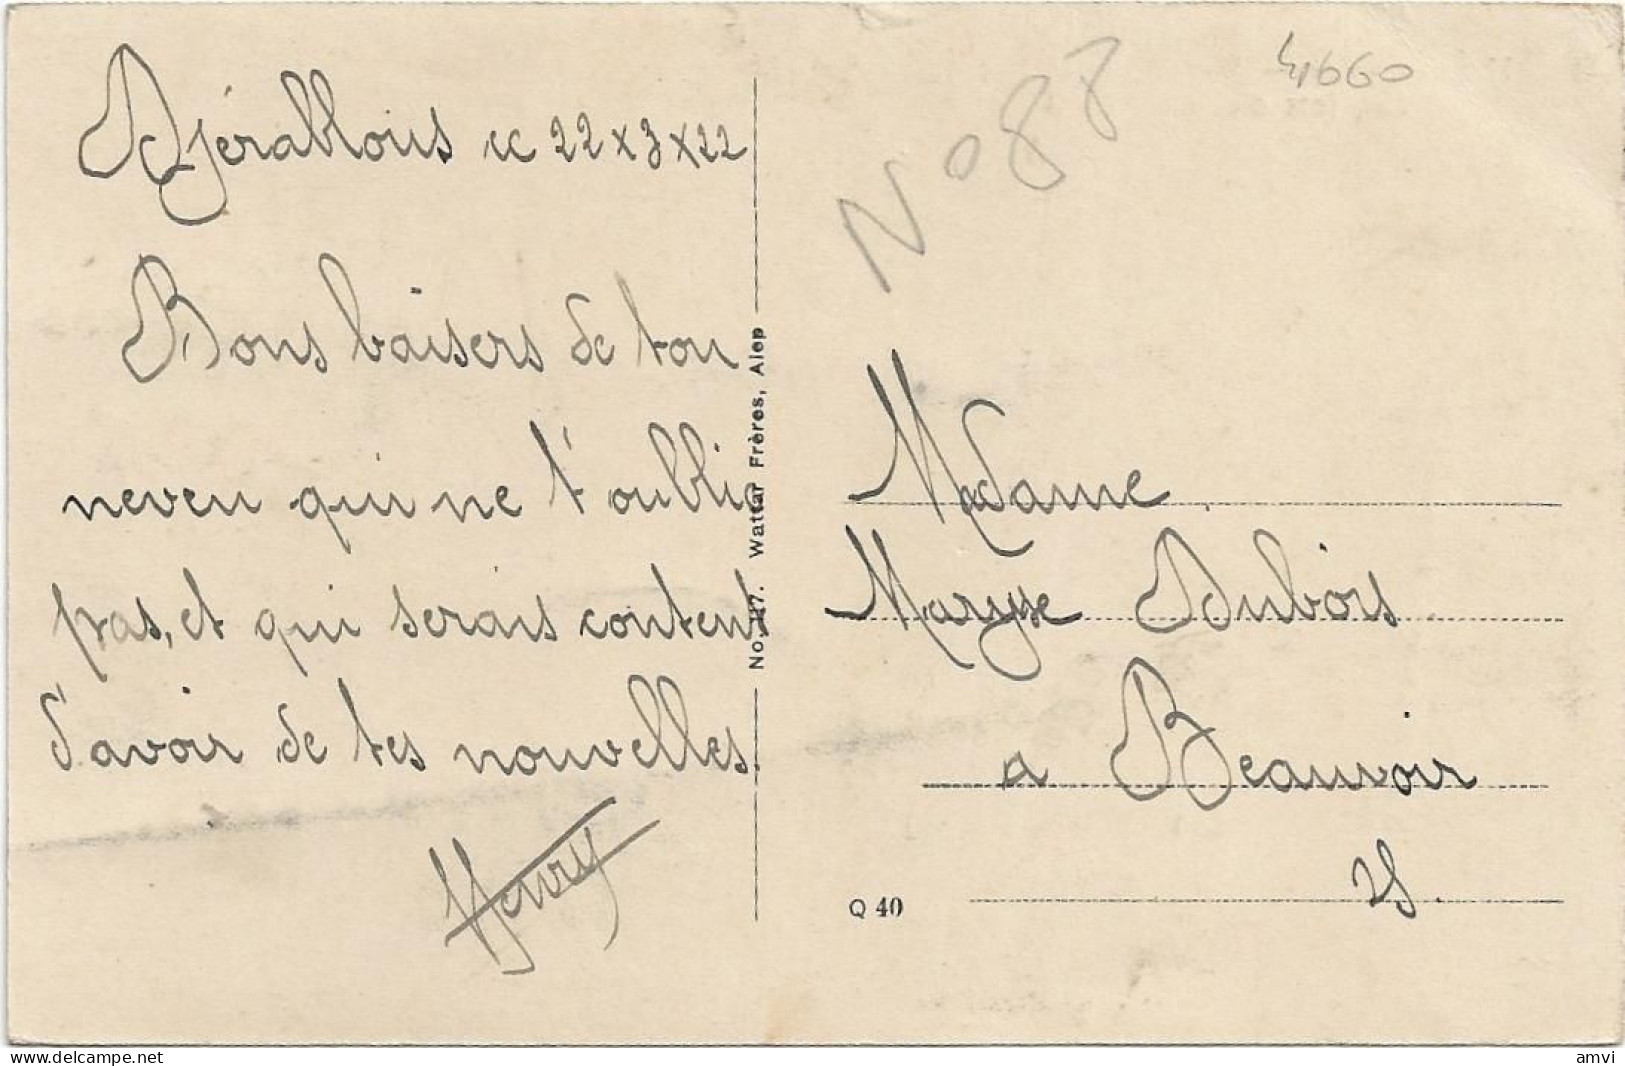 Djérablous le 22x3x22
Bons baisers de ton
neveu qui ne t'oublie
pas, et qui serais content
d'avoir de tes nouvelles.
Henry
No. 117. Wattar Frères, Alep
41660
N° 87
Madame
Maryse Dubois
a Beauvoir
Q 40
www.delcampe.net
amvi